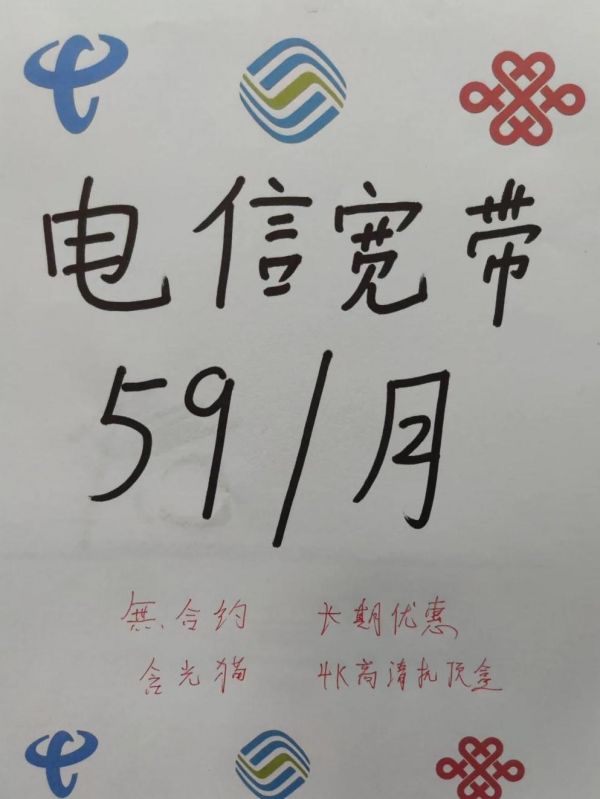 电信宽带
59/月
無合约 长期优惠
含光猫 4K高清机顶盒